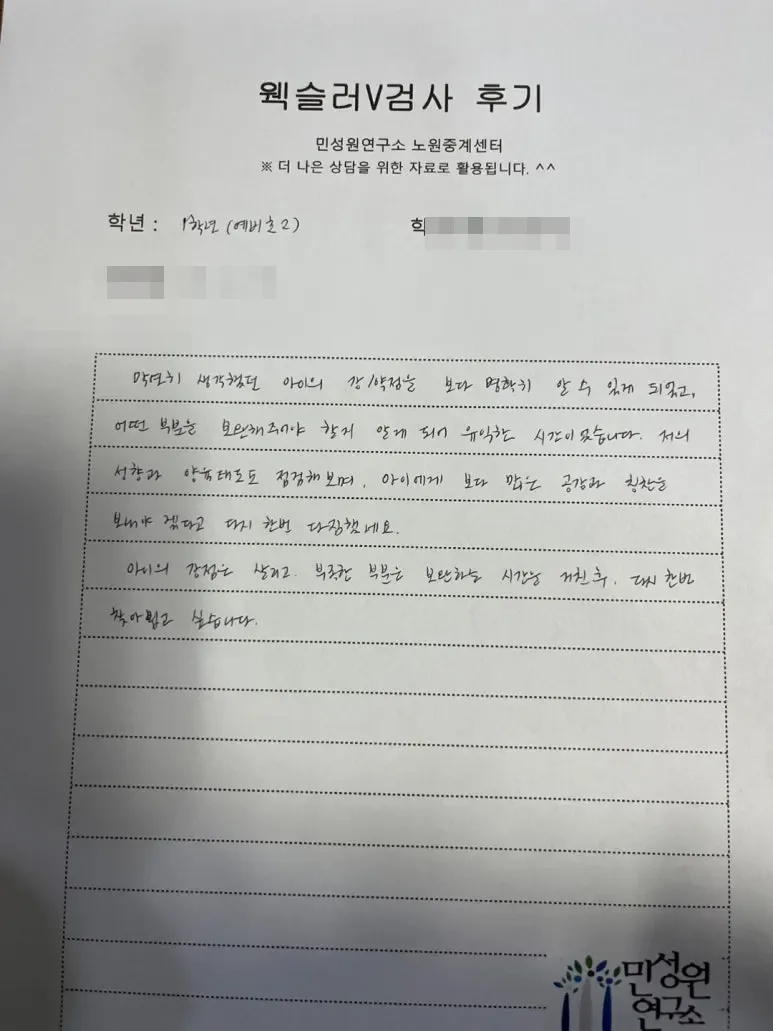 웩슬러V검사 후기
민성원연구소 노원중계센터
※ 더 나은 상담을 위한 자료로 활용됩니다. ^^
학년 : 1학년 (예비초2)
학
막연히 생각했던 아이의 강/약점을 보다 명확히 알 수 있게 되었고,
어떤 부분을 보완해주어야 할지 알게 되어 유익한 시간이었습니다. 저의
성향과 양육태도도 점검해보며, 아이에게 보다 많은 공감과 칭찬을
보내야 겠다고 다시 한번 다짐했네요.
아이의 강점은 살리고. 부족한 부분은 보완하는 시간을 거친 후, 다시 한번
찾아뵙고 싶습니다.
민성원
연구소